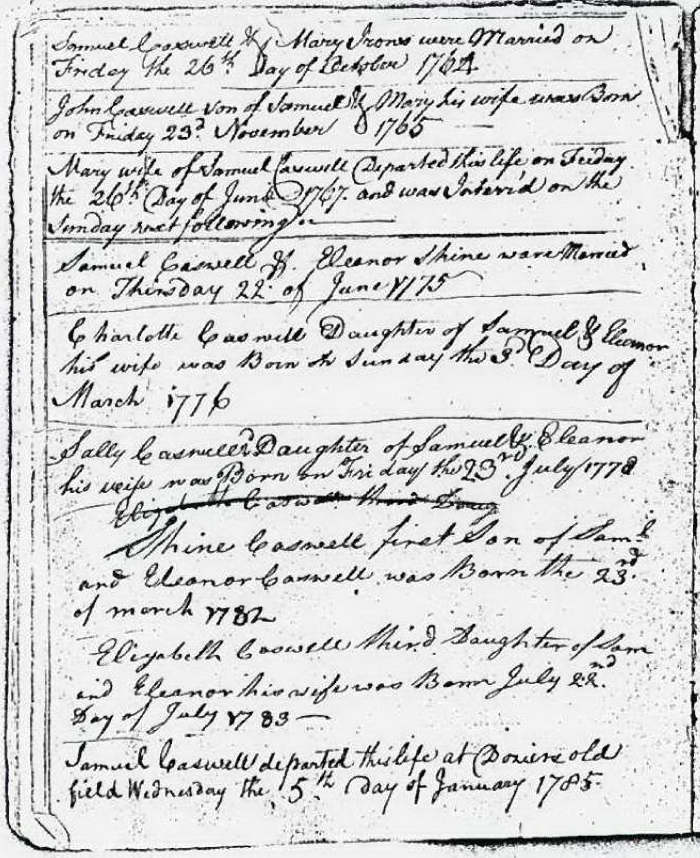 Samuel Caswell & Mary Irons were Married on
Friday the 26th Day of October 1764
John Caswell son of Samuel & Mary his wife was Born
on Friday 23d November 1765
Mary wife of Samuel Caswell Departed this life on Friday
the 26th Day of June 1767. and was Interr'd on the
Sunday next following
Samuel Caswell & Eleanor Shine ware Married
on Thirsday 22d of June 1775
Charlotte Caswell Daughter of Samuel & Eleanor
his wife was Born on Sunday the 3d Day of
March 1776
Sally Caswell 2d Daughter of Samuel & Eleanor
his wife was Born on Friday the 23rd July 1778
Elizabeth Caswell third Daug
Shine Caswell first Son of Saml
and Eleanor Caswell was Born the 23rd
of march 1782
Elizabeth Caswell third Daughter of Sam
and Eleanor his wife was Born July 22nd
Day of July 1783
Samuel Caswell departed this life at Doziers old
field Wednesday the 5th Day of January 1785